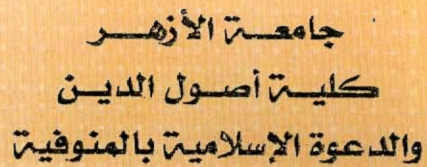 جامعة الأزهر
كلية أصول الدين
والدعوة الإسلامية بالمنوفية